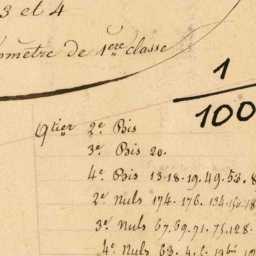 3 et 4
omètre de 1ere classe
1
100
Qtier 2e Bis
3e Bis 20.
4e Bis 13. 18. 19. 49. 53. 8
2e Nuls 174. 176.
3e Nuls 67. 69. 71. 75. 128.
4e Nuls 63.